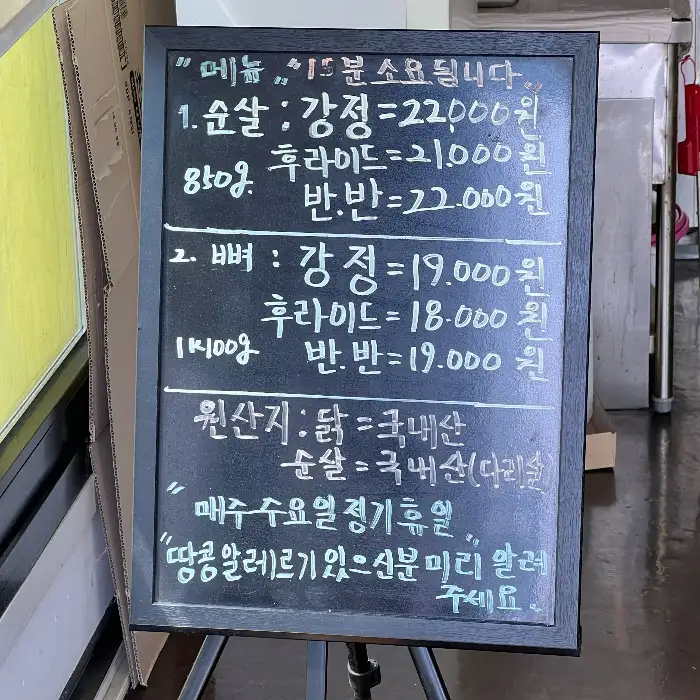 "메뉴" "15분 소요됩니다"
1. 순살 : 강정 = 22,000원
후라이드 = 21.000원
850g. 반.반 = 22.000원
2. 뼈 : 강정 = 19.000원
후라이드 = 18.000원
1K100g 반.반 = 19.000원
원산지 : 닭 = 국내산
순살 = 국내산(다리살)
"매주 수요일 정기휴일"
"땅콩알레르기있으신분 미리 알려
주세요.